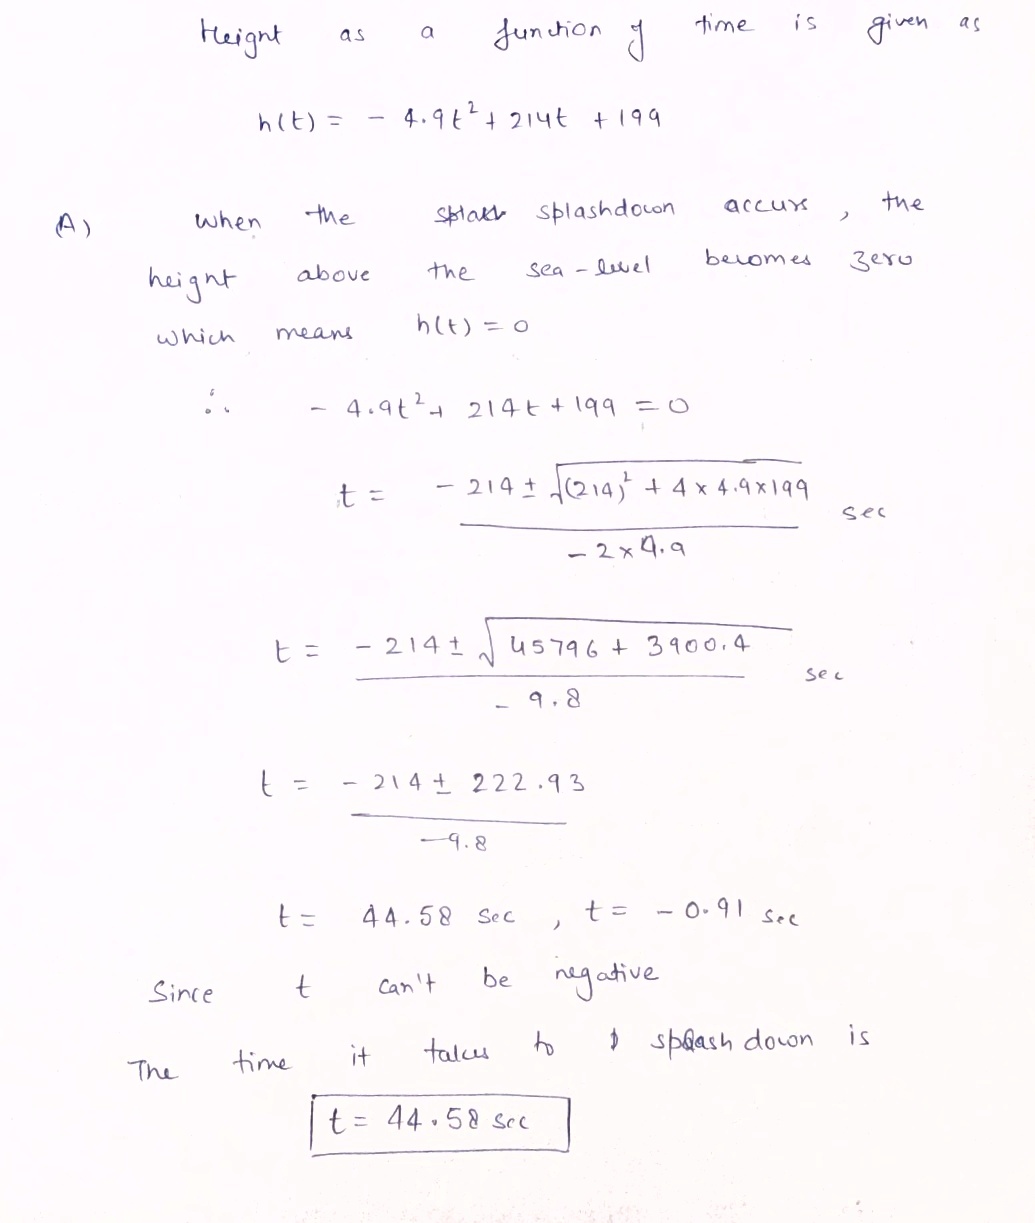 Height as a function of time is given as
h(t) = - 4.9t² + 214t + 199
A) When the splash splashdown accurs, the
height above the sea-level becomes zero
which means h(t) = 0
∴ - 4.9t² + 214t + 199 = 0
t = - 214 ± √(214)² + 4 x 4.9x199 sec
- 2 x 4.9
t = - 214 ± √45796 + 3900.4 sec
- 9.8
t = - 214 ± 222.93
-9.8
t = 44.58 sec, t = - 0.91 sec
Since t can't be negative
The time it takes to splash down is
t = 44.58 sec